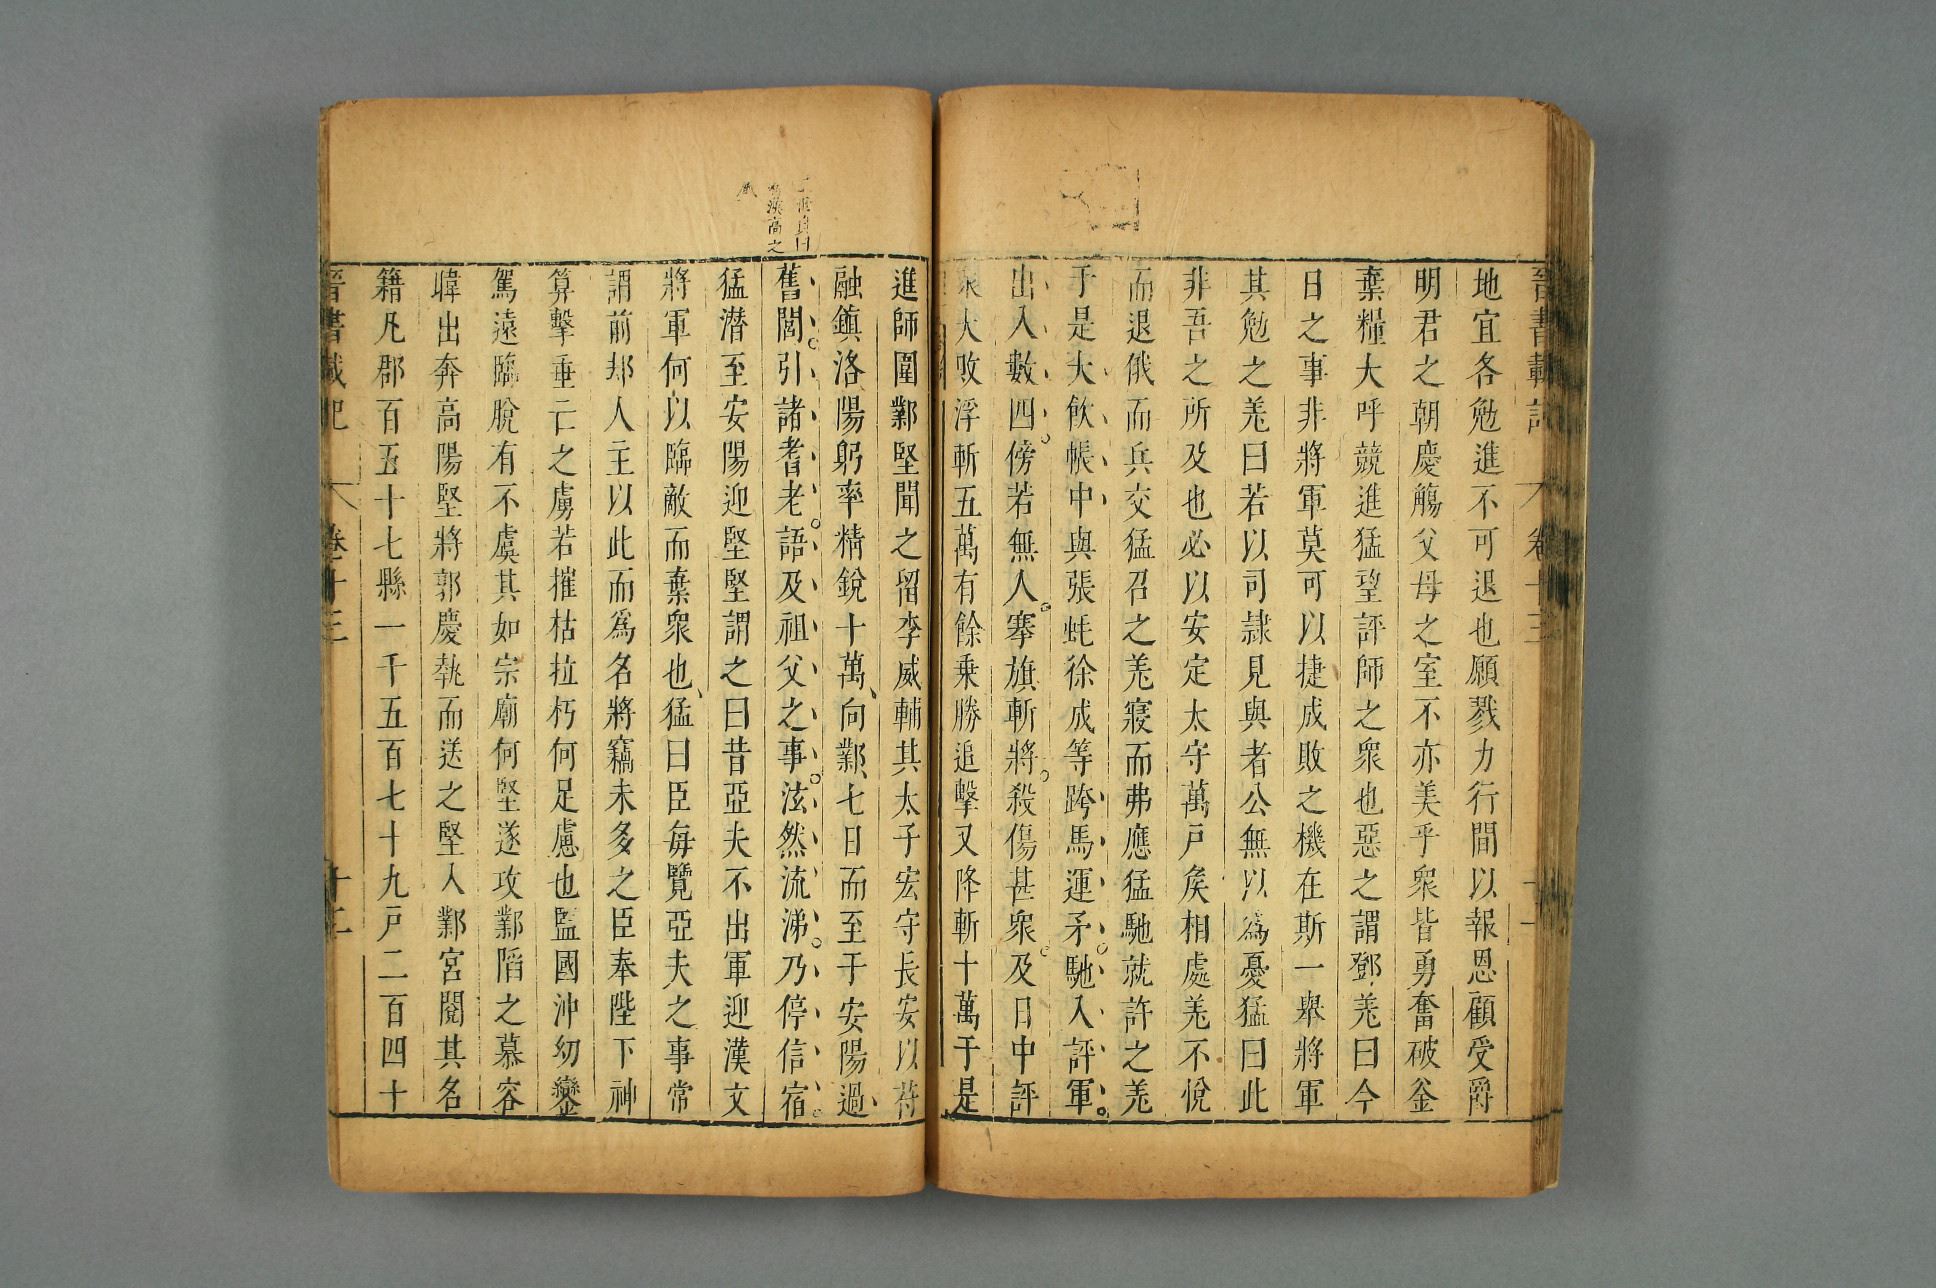 晉書載記 卷十三 十一
地宜各勉進不可退也願戮力行間以報恩顧受爵
明君之朝慶觴父母之室不亦美乎衆皆勇奮破釜
棄糧大呼競進猛望評師之衆也惡之謂鄧羌曰今
日之事非將軍莫可以捷成敗之機在斯一舉將軍
其勉之羌曰若以司隷見與者公無以爲憂猛曰此
非吾之所及也必以安定太守萬戸矦相處羌不悅
而退俄而兵交猛召之羌寢而弗應猛馳就許之羌
于是大飲帳中與張蚝徐成等跨馬運矛馳入評軍
出入數四傍若無人搴旗斬將殺傷甚衆及日中評
衆大敗浮斬五萬有餘乗勝追擊又降斬十萬于是
進師圍鄴堅聞之留李威輔其太子宏守長安以苻
融鎮洛陽躬率精銳十萬向鄴七日而至于安陽過
舊閭引諸耆老語及祖父之事泫然流涕乃停信宿
猛潜至安陽迎堅堅謂之曰昔亞夫不出軍迎漢文
將軍何以臨敵而棄衆也猛曰臣每覽亞夫之事常
謂前却人主以此而爲名將竊未多之臣奉陛下神
算擊垂亡之虜若摧枯拉朽何足慮也監國沖幼鑾
駕遠臨脫有不虞其如宗廟何堅遂攻鄴陷之慕容
暐出奔高陽堅將郭慶執而送之堅入鄴宮閱其名
籍凡郡百五十七縣一千五百七十九戸二百四十
晉書載記 卷十三 十二
世貞曰
漢高之
風